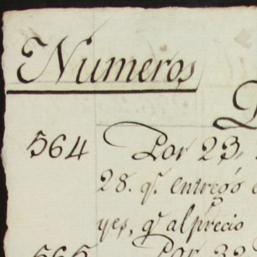 Numeros
564 Por 23,
28. q.e entregó
yes, q.e al precio
565 Por 32